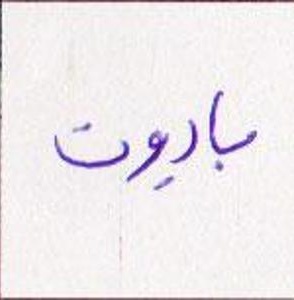 باديوت